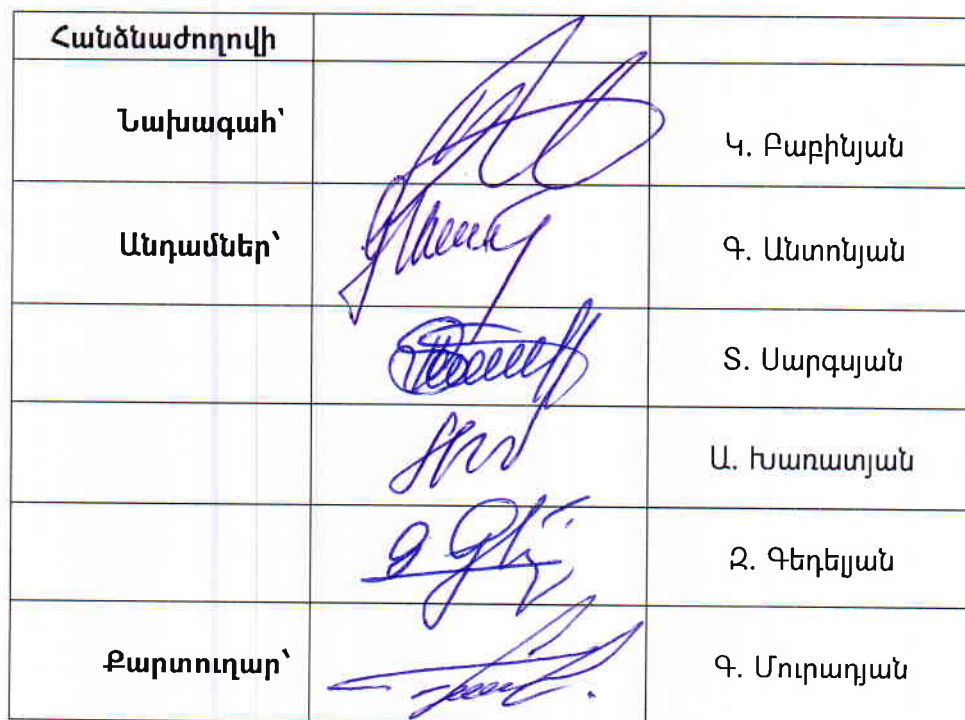 Հանձնաժողովի
Նախագահ՝ Կ. Բաբինյան
Անդամներ՝ Գ. Անտոնյան
Տ. Սարգսյան
Ա. Խառատյան
Զ. Գեդելյան
Քարտուղար՝ Գ. Մուրադյան